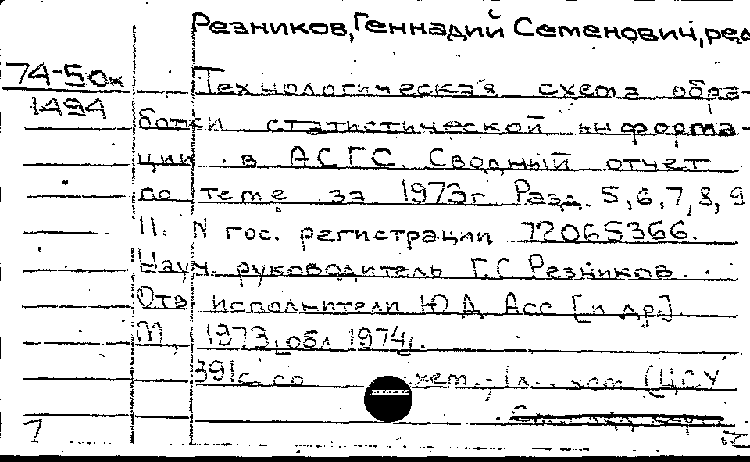 Резников, Геннадий Семенович, ред
74-50к Технологическая схема обра-
1494 ботки статистической информа-
ции в АСГС. Сводный отчет
по теме за 1973г. Разд. 5,6,7,8,9
11. N гос. регистрации 72065366.
Науч. руководитель Г.С Резников.
Отв исполнители Ю.Д. Асс [и др.].
М., 1973, обл 1974.
391с. со схем., 1л. (ЦСУ